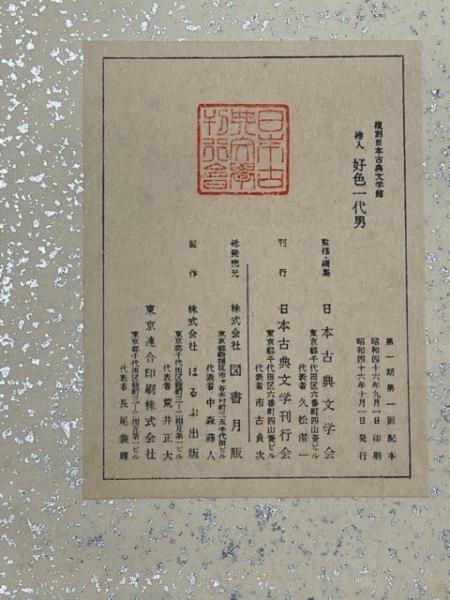 複刻日本古典文学館
繪入 好色一代男
第一期第一回配本
昭和四十六年九月一日印刷
昭和四十六年十月一日発行
監修・編集 日本古典文学会
東京都千代田区六番町四山菱ビル
代表者 久松潜一
刊行 日本古典文学刊行会
東京都千代田区六番町四山菱ビル
代表者 市古貞次
総発売元 株式会社 図書月販
代表者 中森蒔人
製作 株式会社 ほるぷ出版
代表者 荒井正大
東京連合印刷株式会社
代表者 長尾義輝
日本古
典文學
刊行會